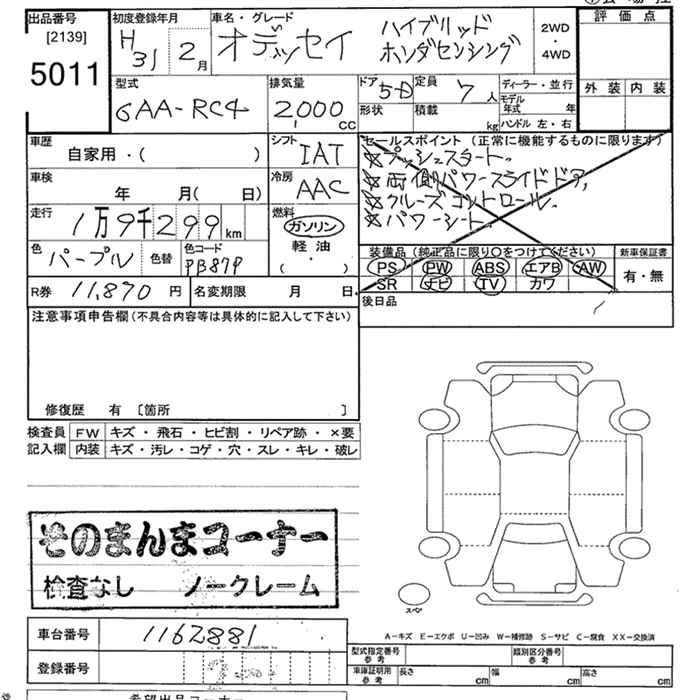 出品番号 初度登録年月 車名・グレード 評価点
[2139] H31 2月 オデッセイ ハイブリッド ホンダセンシング 2WD・4WD
5011
型式 排気量 ドア 定員 ディーラー・並行 外装 内装
6AA-RC4 2000cc 5D 7人 モデル年式 年
形状 積載 kg ハンドル 左・右
車歴 シフト セールスポイント(正常に機能するものに限ります)
自家用・( ) IAT ☆プッシュスタート.
車検 冷房 ☆両側パワースライドドア,
年 月( 日) AAC ☆クルーズコントロール.
走行 燃料 ☆パワーシート.
1万9千299km ガソリン
軽油
( ・ )
色 パープル 色替 色コード PB87P
装備品(純正品に限り○をつけてください) 新車保証書
PS PW ABS エアB AW 有・無
SR ナビ TV カワ
R券 11,870円 名変期限 月 日 後日品
注意事項申告欄(不具合内容等は具体的に記入して下さい)
修復歴 有 [箇所 ]
検査員 FW キズ・飛石・ヒビ割・リペア跡・×要
記入欄 内装 キズ・汚レ・コゲ・穴・スレ・キレ・破レ
そのまんまコーナー
検査なし ノークレーム
スペア
A-キズ E-エクボ U-凹み W-補修跡 S-サビ C-腐食 XX-交換済
車台番号 1162881
型式指定番号 参考 類別区分番号 参考
登録番号
車庫証明用 参考 長さ cm 幅 cm 高さ cm
希望出品コーナー